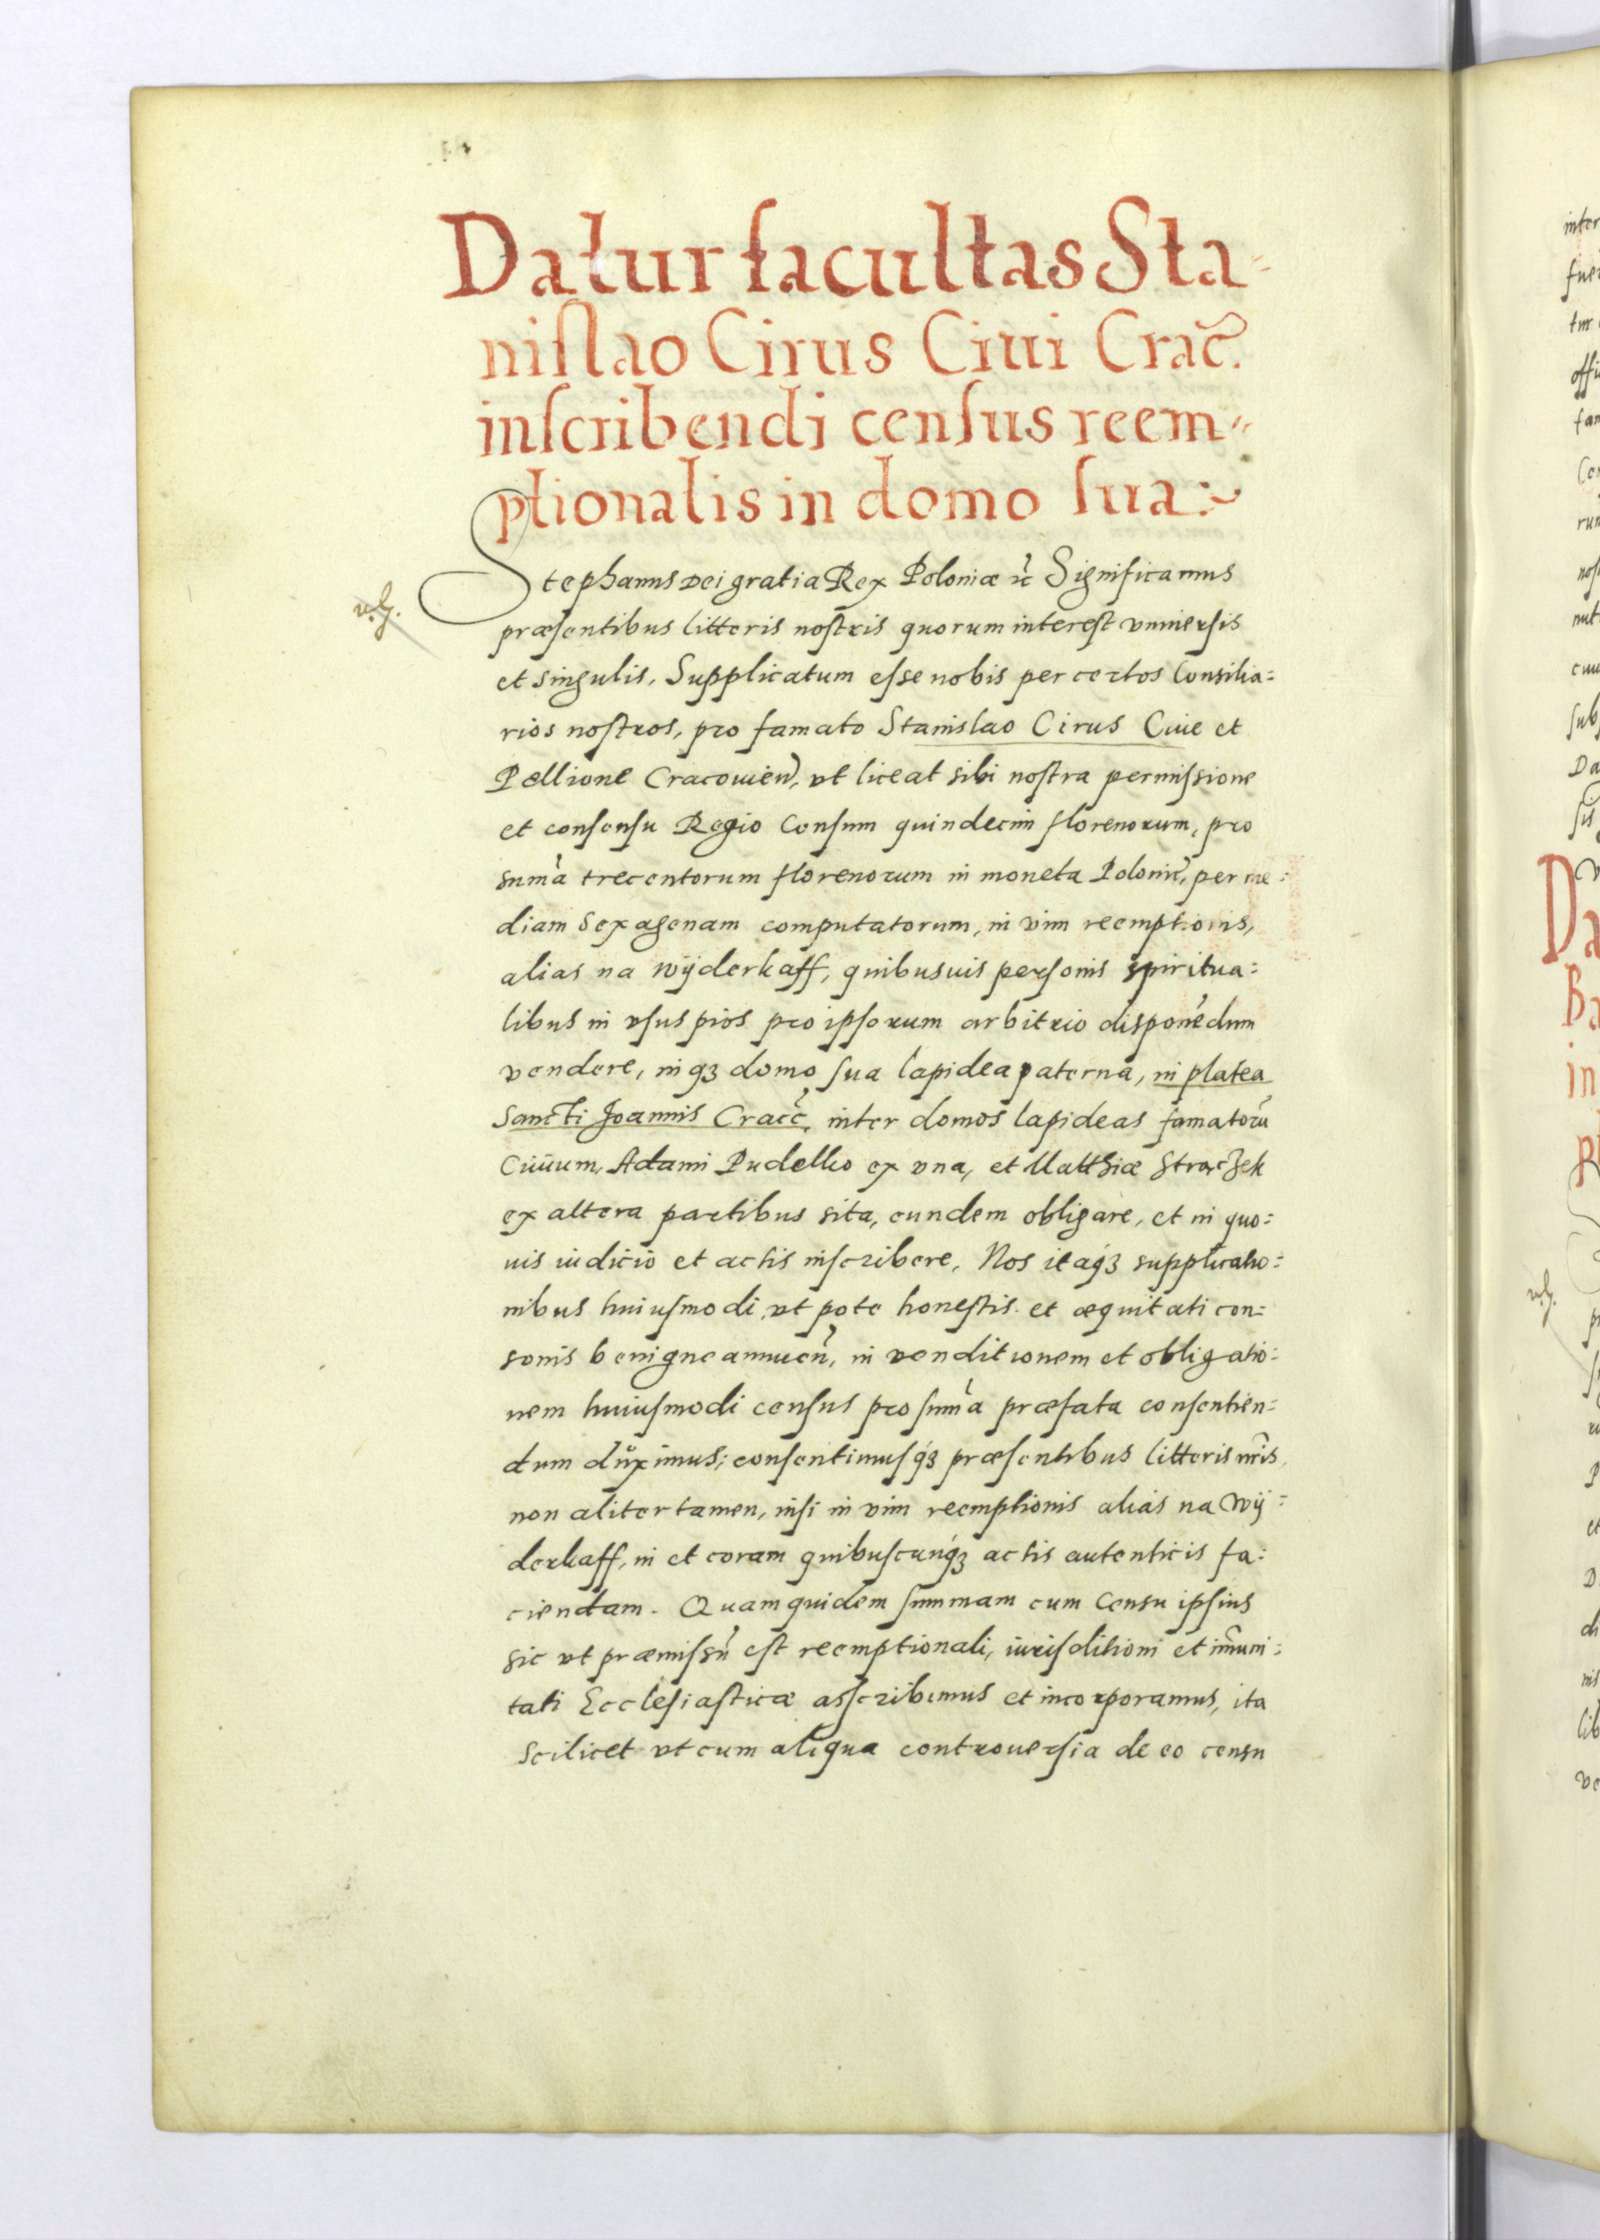 Datur facultas Sta-
nislao Cirus Ciui Crac̃.
inscribendi census reem-
ptionalis in domo sua:~
Stephanus Dei gratia Rex Poloniæ ꝛc̃ Significamus
præsentibus litteris nostris quorum interest vniuersis
et singulis. Supplicatum esse nobis per certos Consilia=
rios nostros, pro famato Stanislao Cirus Ciue et
Pellione Cracouien̄, vt liceat sibi nostra permissione
et consensu Regio Censum quindecim florenorum, pro
sum̃a trecentorum florenorum in moneta Polonic̃, per me=
diam sexagenam computatorum, in vim reemptionis,
alias na wÿderkaff, quibusuis personis spiritua=
libus in vsus pios pro ipsorum arbitrio disponẽdum
vendere, inqȝ domo sua lapidea paterna, in platea
Sancti Joannis Cracc̃. inter domos lapideas famatorũ
Ciuium, Adami Pudelko ex vna, et Matthiæ Straczek
ex altera partibus sita, eundem obligare, et in quo=
uis iudicio et actis inscribere. Nos itaqȝ supplicatio=
nibus huiusmodi, vt pote honestis et æquitati con=
sonis benigne annuen̄, in venditionem et obligatio=
nem huiusmodi census pro sum̃a præfata consentien=
dum duximus; consentimusqȝ præsentibus litteris nr̃is,
non aliter tamen, nisi in vim reemptionis alias na Wÿ=
derkaff, in et coram quibuscunqȝ actis autenticis fa=
ciendam. Quam quidem summam cum Censu ipsius
sic vt præmissũ est reemptionali, iurisditioni et im̃uni=
tati Ecclesiasticæ asscribimus et incorporamus, ita
scilicet vt cum aliqua controuersia de eo censu